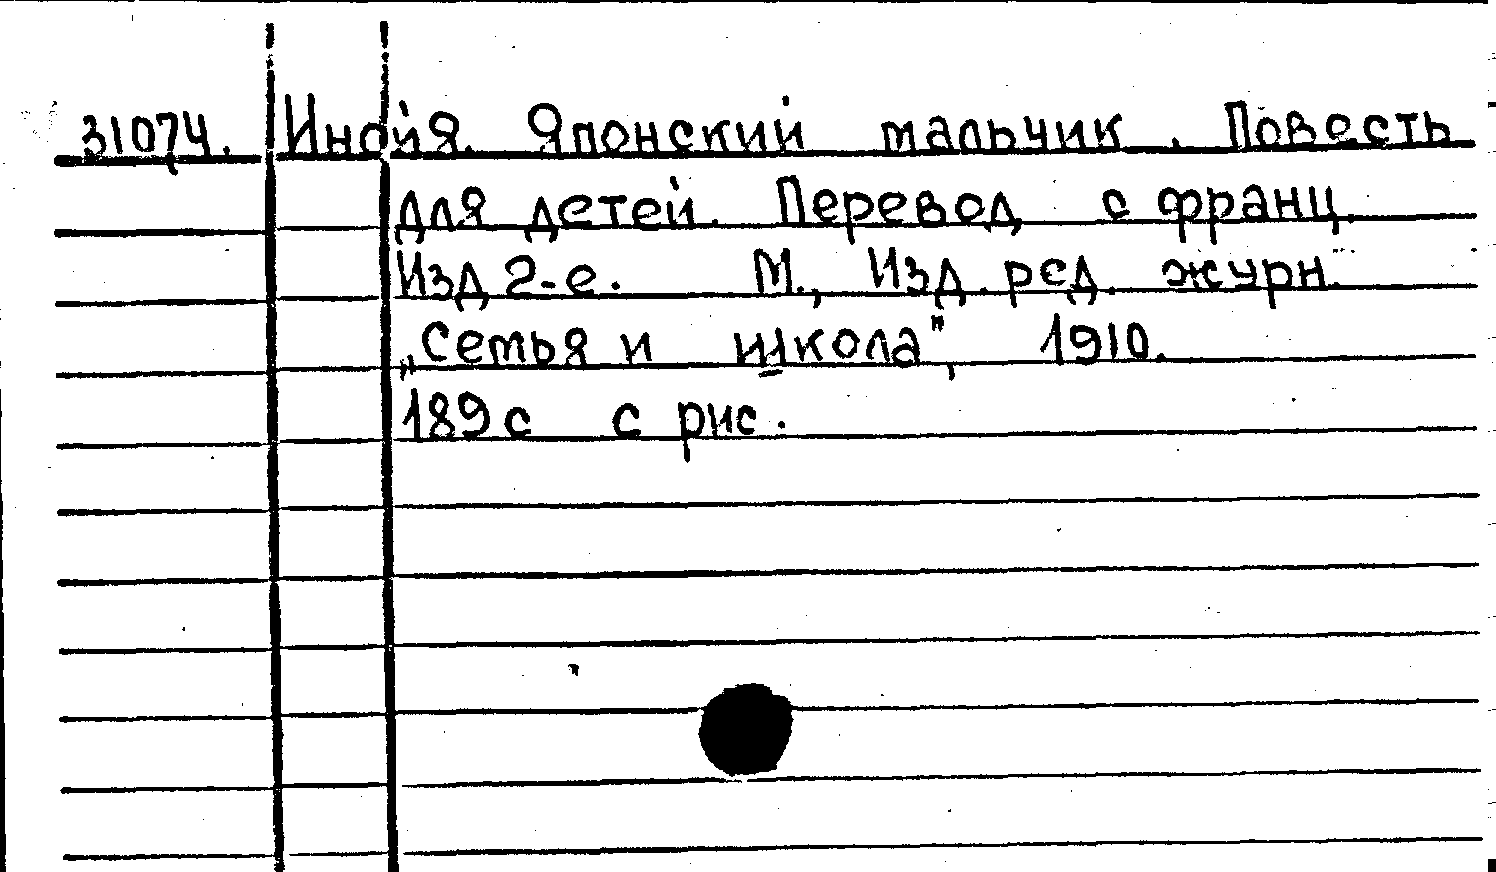 31074. Инойя. Японский мальчик. Повесть
для детей. Перевод с франц.
Изд 2-е. М., Изд. ред. журн.
„Семья и школа", 1910.
189 с с рис.